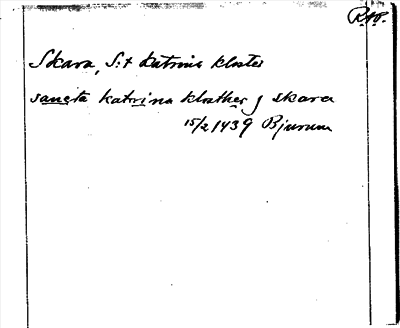 RAp.
Skara, S:t Katrins kloster
sancta katrina klosther j skara
15/2 1439 Bjurum